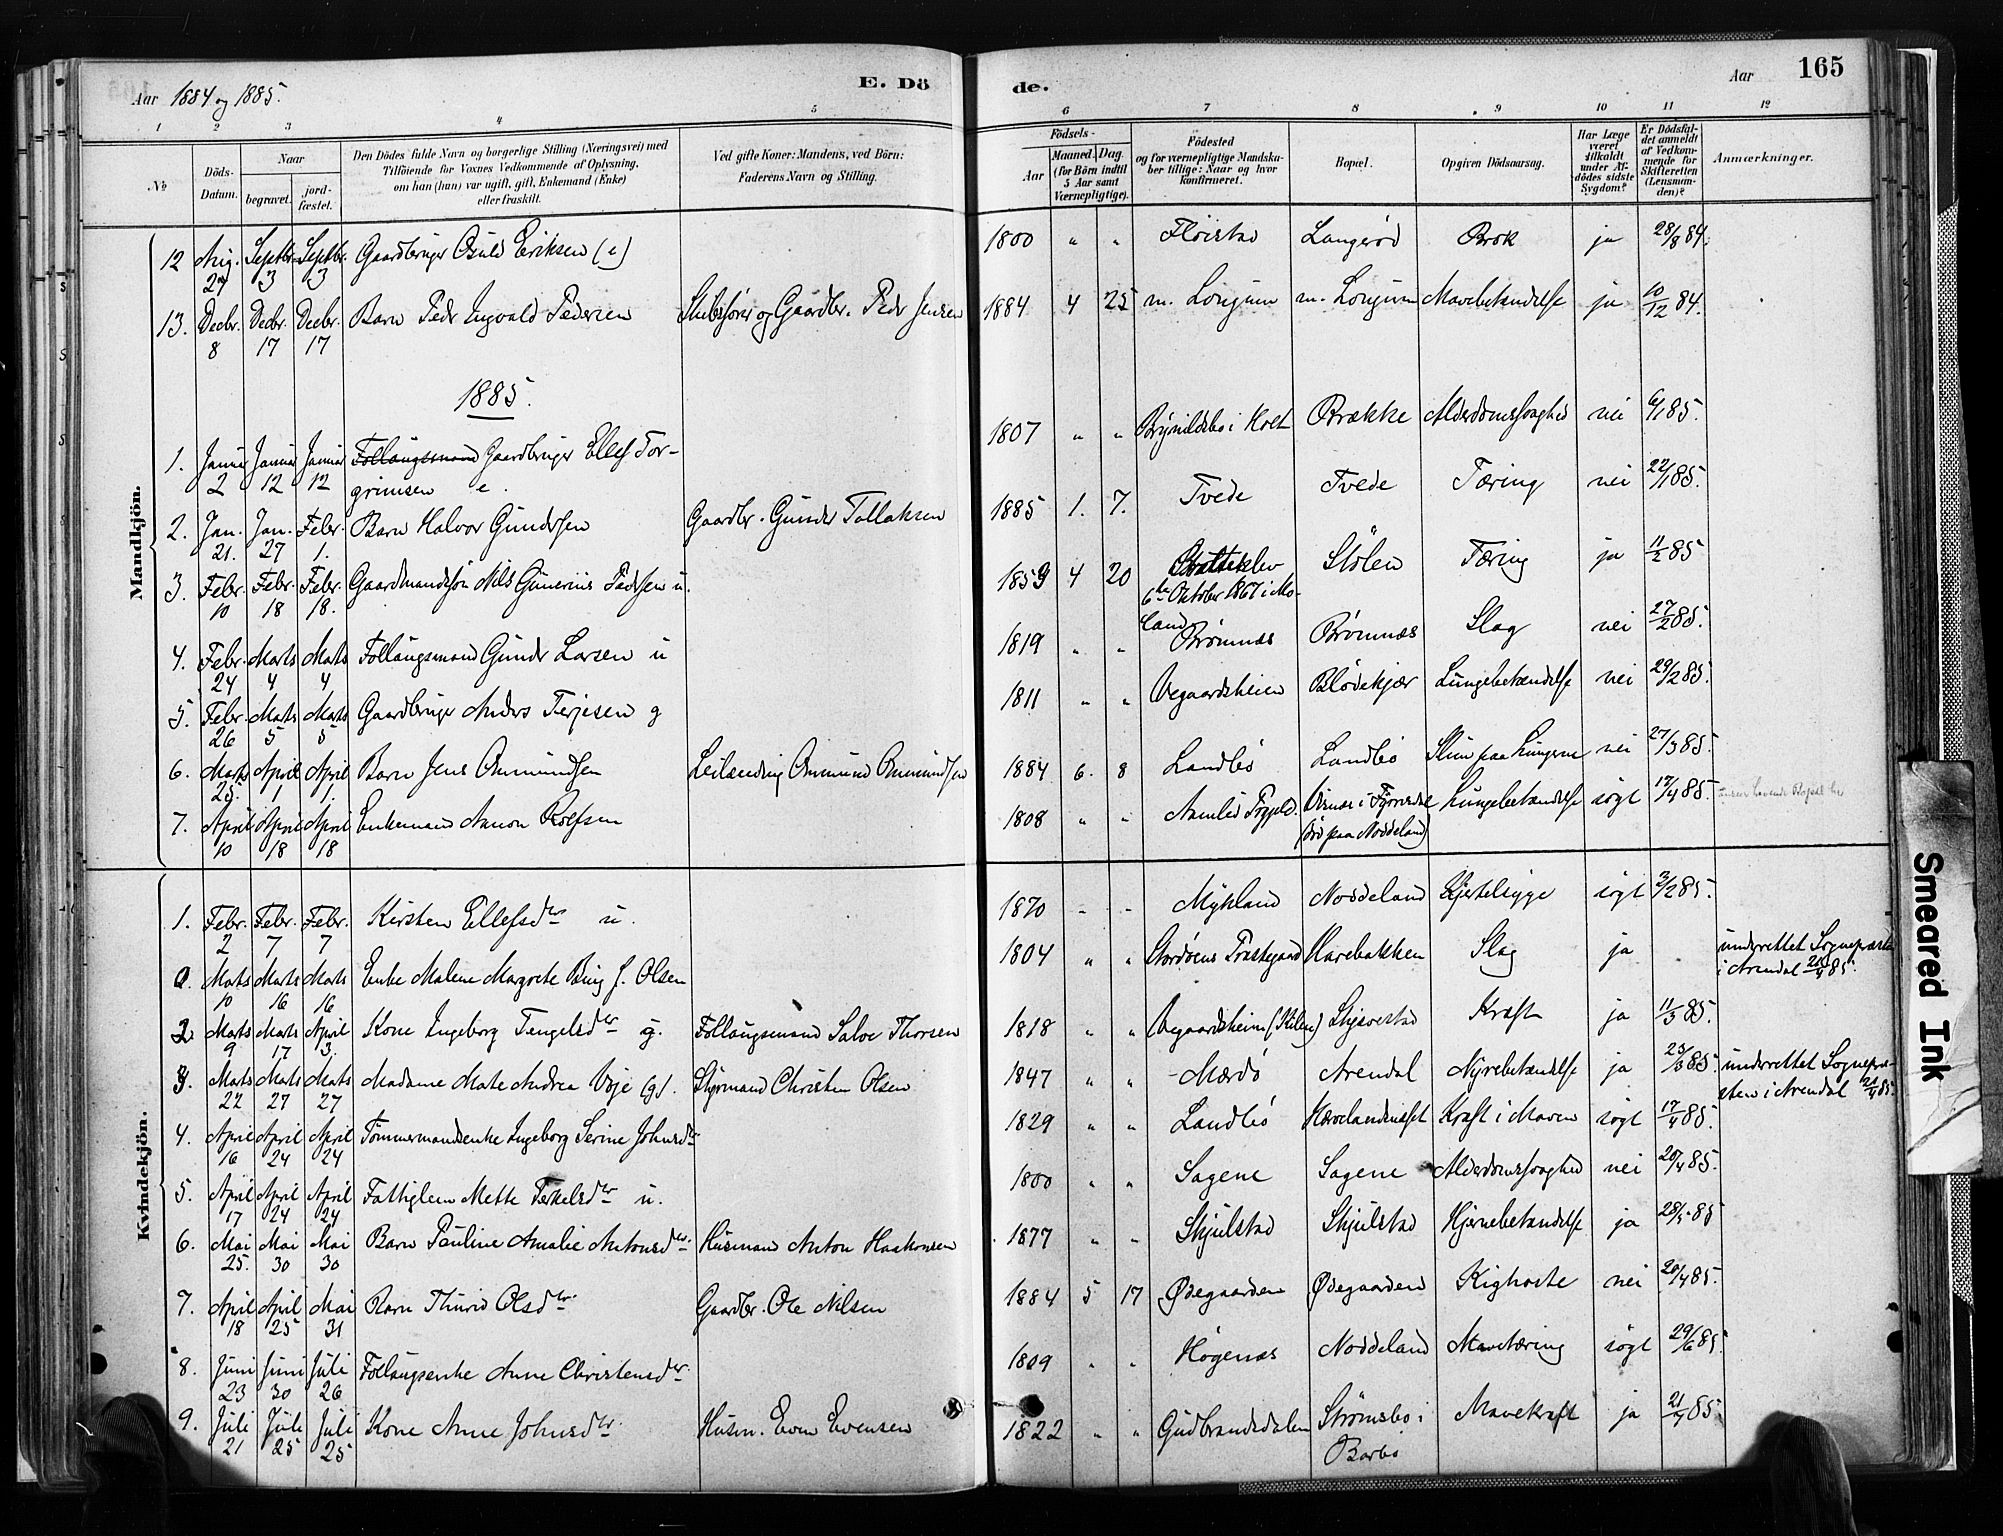 Aar 1884 og 1885.
E. Dö
de.
Aar
165
1 2 3 4 5 6 7 8 9 10 11 12
No
Döds-Datum.
Naar
begravet.
jord-fæstet.
Den Dödes fulde Navn og borgerlige Stilling (Næringsvei) med
Tilföiende for Voxnes Vedkommende af Oplysning,
om han (hun) var ugift, gift, Enkemand (Enke)
eller fraskilt.
Ved gifte Koner: Mandens, ved Börn:
Faderens Navn og Stilling.
Födsels-
Aar
Maaned. Dag.
(for Börn indtil
5 Aar samt
Værnepligtige).
Födested
og for værnepligtige Mandska-
ber tillige: Naar og hvor
konfirmeret.
Bopæl.
Opgiven Dödsaarsag.
Har Læge
været
tilkaldt
under Af-
dödes sidste
Sygdom?
Er Dödsfal-
det anmeldt
af Vedkom-
mende for
Skifteretten
(Lensman-
den)?
Anmærkninger.
Mandkjön.
12 Aug. 27 Septbr. 3 Septbr. 3 Gaardbruger Osuld Eriksen (e) 1800 " " Fløistad Langerød Brok ja 28/8 84.
13. Decbr. 8 Decbr. 17 Decbr. 17 Barn Peder Ingvald Pedersen Skibsfører og Gaardbr. Peder Jensen 1884 4 25 m. Longum m. Longum Mavebetændelse ja 10/12 84.
1885.
1. Januar 2 Januar 12 Januar 12 Follaugsmand Gaardbruger Ellef Tor-
grimsen e. 1807 " " Brynildsbo i Holt Brække Alderdomssvaghed nei 6/1 85.
2. Jan. 21. Jan. 27 Febr. 1. Barn Halvor Gundersen Gaardbr. Gunder Tallaksen 1885 1. 7. Tvede Tvede Tæring nei 22/1 85.
3. Febr. 10 Febr. 18 Febr. 18. Gaardmandssøn Nils Gunerius Pedersen u. 1859 4 20 Bratteklev
6te Oktober 1867 i Mo-
land Stølen Tæring ja 11/2 85
4. Febr. 24 Marts 4 Marts 4 Follaugsmand Gunder Larsen u 1819 " " Brømnes Brømnes Slag nei 27/2 85.
5. Febr. 26 Marts 5 Marts 5 Gaardbruger Anders Terjesen g 1811 " " Vegaardsheien Blødekjær Lungebetændelse nei 29/2 85.
6. Marts 25. April 1 April 1. Barn Jens Anmundsen Leilænding Anmund Anmundsen 1884 6. 8 Landbø Landbø Slim paa Lungerne nei 27/3 85.
7. April 10 April 18 April 18 Enkemand Aanon Rolfsen 1808 " " Aamlid Præstegjeld
(død paa Noddeland) Lungebetændelse søgt 17/4 85.
Kvindekjön.
1. Febr. 2 Febr. 7 Febr. 7 Kirsten Ellefsdtr u. 1870 - - Mykland Noddeland Hjertesyge søgt 3/2 85.
0 Marts 10 Marts 16 Marts 16 Enke Malene Margrete Bing f. Olsen 1804 " " Harebakken Slag ja underrettet Sognepresten
i Arendal 21/4 85.
2. Marts 9 Marts 17 April 3. Kone Ingeborg Tengelsdtr g. Follaugsmand Salve Thorsen 1818 " " Vegaardsheien Kræft ja 11/3 85.
3. Marts 22 Marts 27 Marts 27 Madame Mate Andrea Voje (g). Styrmand Christen Olsen 1847 " " Mærdø Arendal Nyrebetændelse ja 23/3 85. underrettet Sognepre-
sten i Arendal 21/4 85.
4. April 16 April 24 April 24 Tømmermandsenke Ingeborg Serine Johnsdtr 1829 " " Landbø Kræft i Maven søgt 17/4 85.
5. April 17 April 24 April 24 Fattiglem Mette Terkelsdtr u. 1800 " " Sagene Sagene Alderdomssvaghed nei 20/4 85.
6. Mai 25. Mai 30 Mai 30 Barn Pauline Amalie Antonsdtr. Husmand Anton Haakonsen 1877 " " Skjulstad Skjulstad Hjernebetændelse ja 28/5 85
7. April 18 April 25 Mai 31 Barn Thurid Olsdtr. Gaardbr. Ole Nilsen 1884 5 17 Ødegaarden Ødegaarden Kighoste nei 20/4 85.
8. Juni 23 Juni 30 Juli 26 Follaugsenke Anne Christensdtr. 1809 " " Høgenes Noddeland Mavetæring søgt 29/6 85.
9. Juli 21 Juli 25 Juli 25 Kone Anne Johnsdtr. Husm. Even Evensen 1822 " " Gudbrandsdalen Strømsbo i
Barbo Mavekræft ja 21/7 85
Smeared Ink